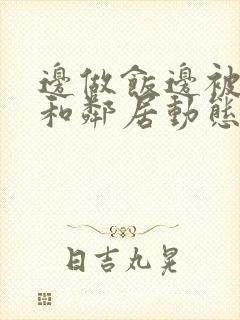 邊做飯邊被
和鄰居動態
日吉丸晃